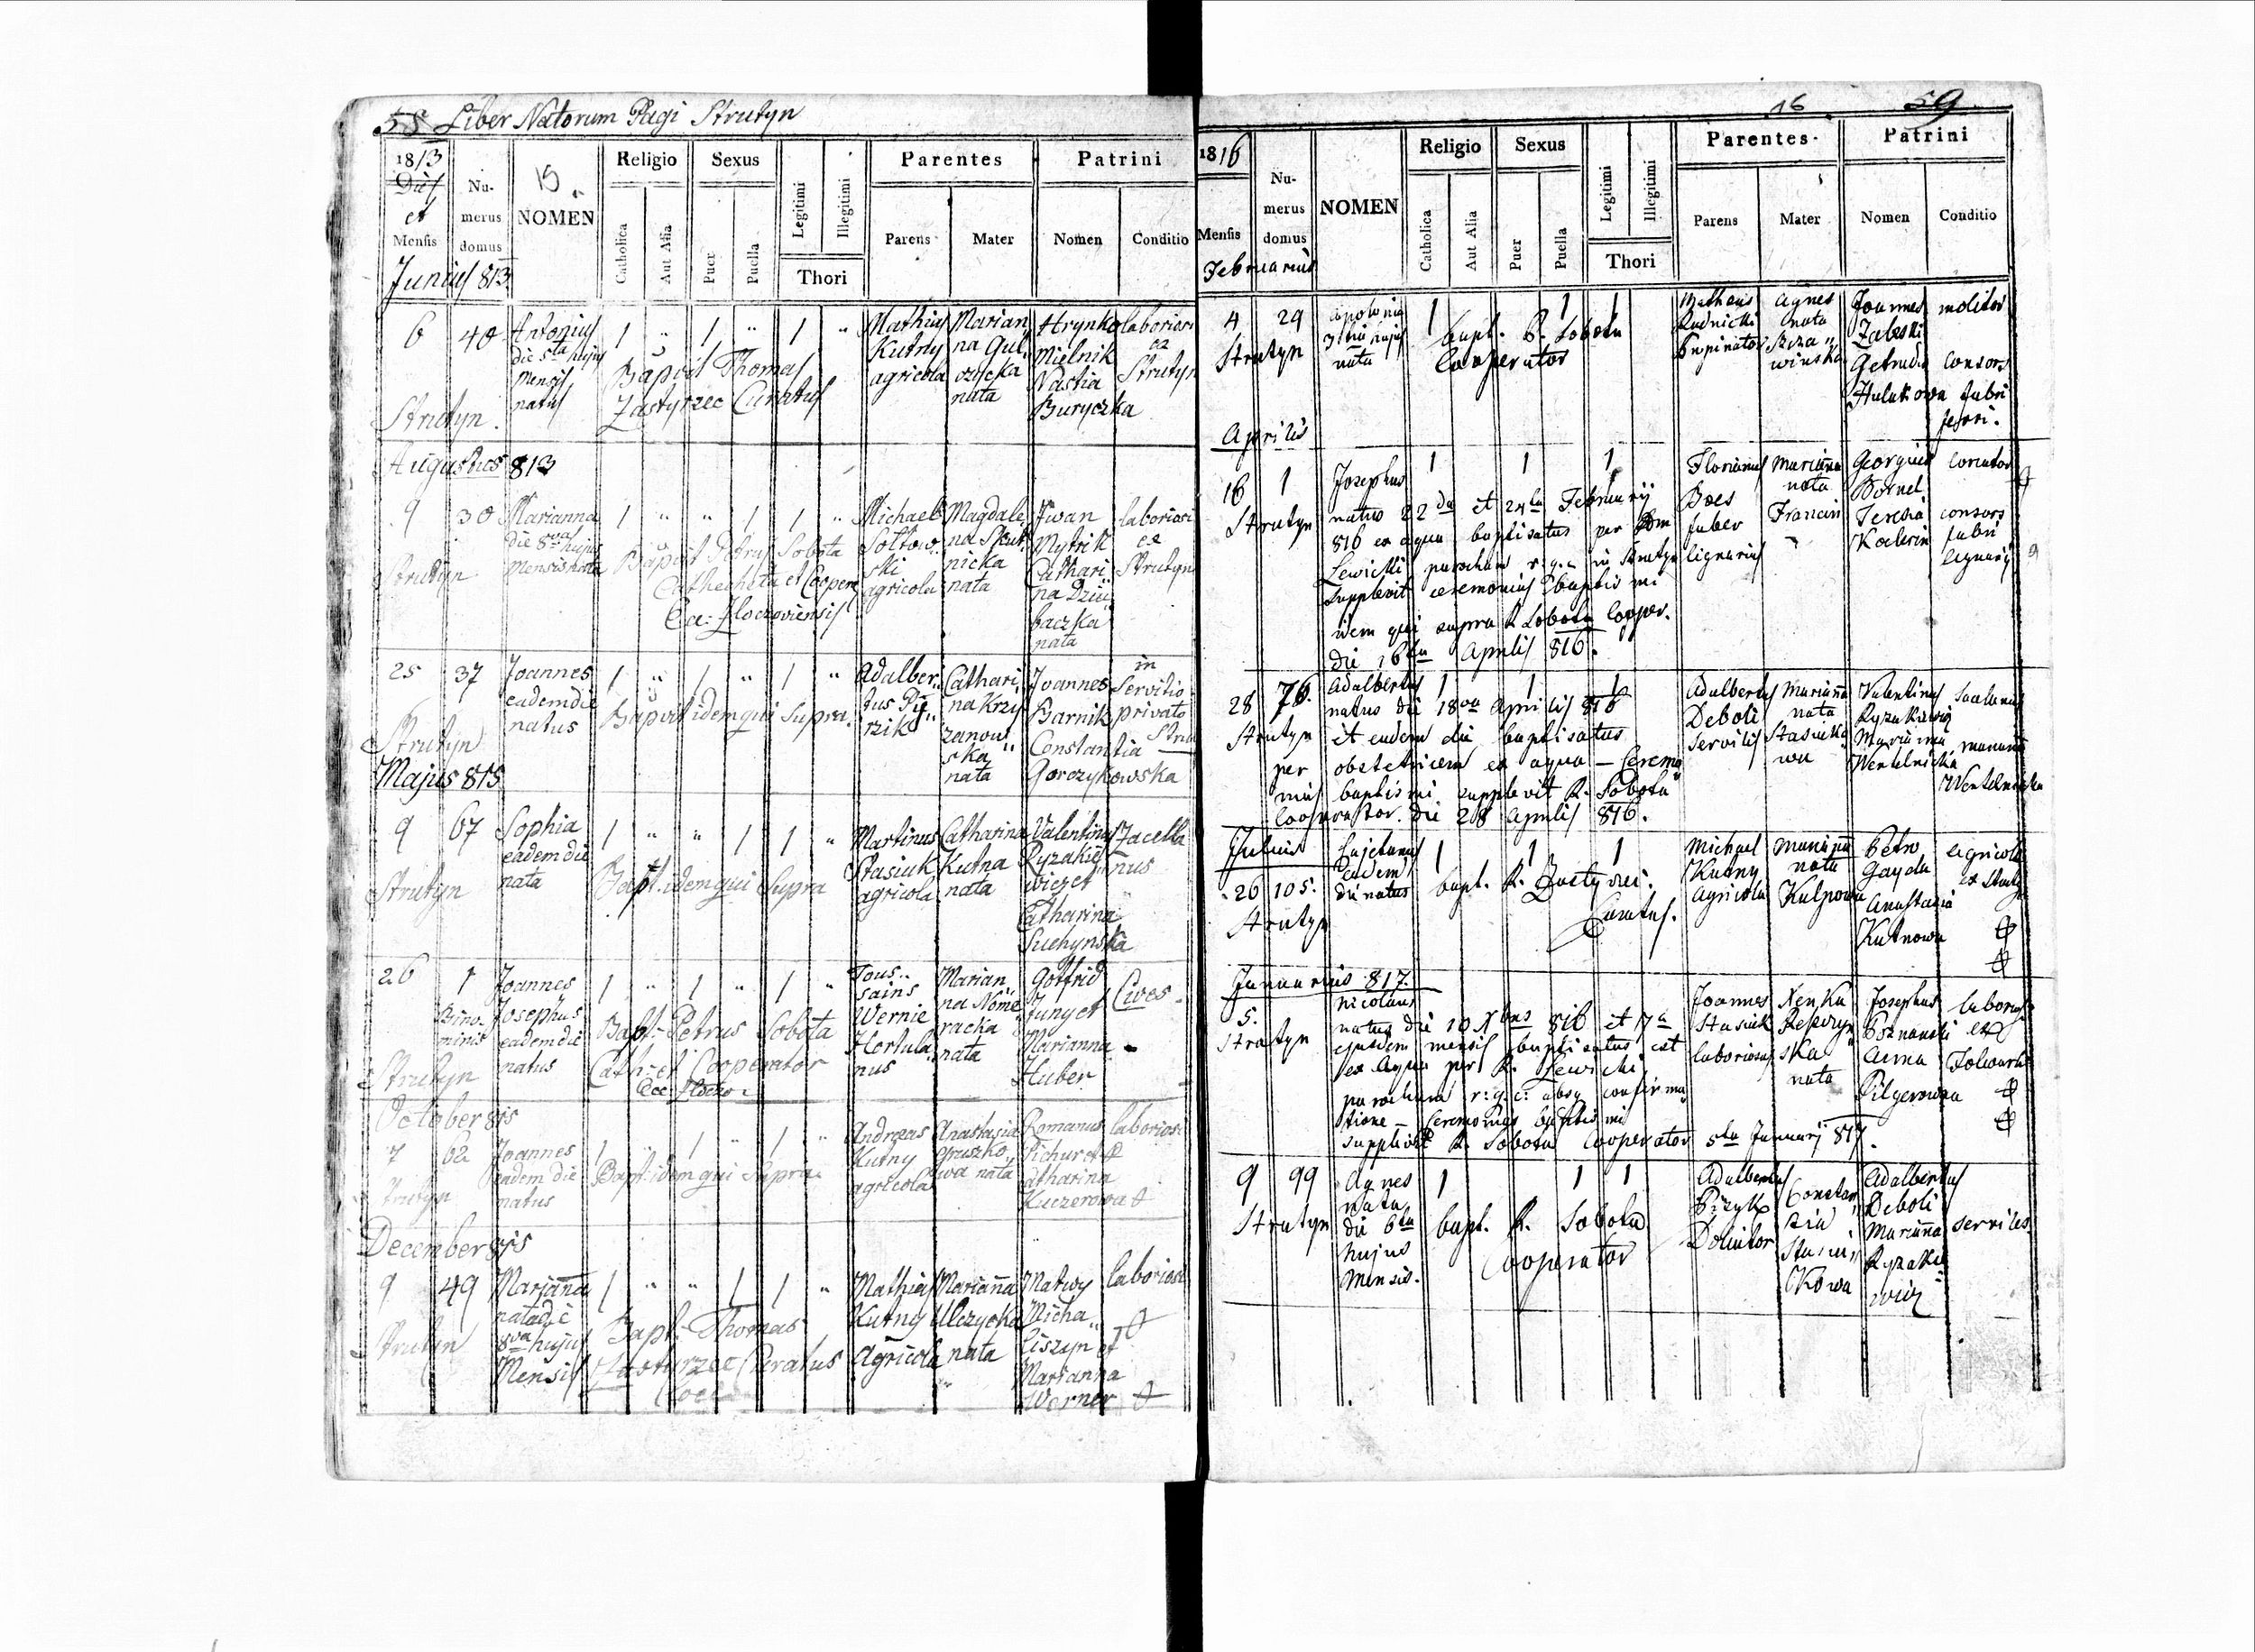 58 Liber Natorum Pagi Strutyn
1813
Dies
et
Mensis
Numerus domus
15
NOMEN
Religio
Catholica
Aut Alia
Sexus
Puer
Puella
Legitimi
Illegitimi
Thori
Parentes
Parens
Mater
Patrini
Nomen
Conditio
Junius 813
6 40 Antonius 1 " 1 " 1 " Mathias Marian Hrynko laboriosi
die 5ta hujus Kutny na Gul Mielnik ex
Mensis Bapsit Thomas agricola nata Nastia Strutyn
natus Zastyrzec Curatus Buryczka
Strutyn
Augustus 813
9 30 Marianna 1 " " 1 1 " Michael Magdale Iwan laboriosi
die 8va hujus Bapsit Petrus Sobota Soltow na Mytrik ex
Strutyn Mensis nata Cathecheta et Cooper ski nicka Cathari Strutyn
Ecc: Zloczoviensis agricola nata na
baczka
nata
25 37 Joannes 1 " 1 " 1 " Adalber Cathari Joannes in
eadem die tus Py na Krzy Barnik servitio
natus Bapsit idem qui supra rzik zanow Constantia privato
Strutyn ska Gorczykowska
nata
Majus 815
9 67 Sophia 1 " " 1 1 " Martinus Catharina Valentinus
eadem die Stasiuk Kutna Ryzakie
Strutyn nata Bapt. idem qui supra agricola nata wicz et
Catharina
Suchynska
26 1 Joannes 1 " 1 " 1 " Tous Marian Gotfrid Cives
Bino Josephus sains na Nome Jung et
minis eadem die Bapt. Petrus Sobota Wernie racka Marianna
Strutyn natus Cath: et Cooperator Hortula nata Huber
nus
October 815
7 62 Joannes 1 " 1 " 1 " Andreas Anastasia Romanus laboriosi
eadem die Bapt. idem qui supra Kutny Gruszko Pichur et
Strutyn natus agricola wa nata Catharina
Kuczerowa
December 815
9 49 Marianna 1 " " 1 1 " Mathias Marianna Matwy laboriosi
nata die Kutny Ulczycka Micha
Strutyn 8va hujus Bapt. Thomas Agricola nata liszyn et
Mensis Zastyrzec Curatus Marianna
Werner
16 59
1816
Mensis
Numerus domus
NOMEN
Religio
Catholica
Aut Alia
Sexus
Puer
Puella
Legitimi
Illegitimi
Thori
Parentes
Parens
Mater
Patrini
Nomen
Conditio
Februarius
4 29 Apolonia 1 1 1 Matheus Agnes Joannes molitor
Strutyn 3tia hujus bapt. R. Sobota Rudnicki nata Zaleski
nata Cooperator Propinator Szcza Getrudis consors
winska Hulukowa fabri
Aprilis
16 1 Josephus 1 1 1 Florianus Marianna Georgius
Strutyn natus 22da et 24ta Februarij Boes nata Bornel
816 ex aqua baptisatus per faber Francin Teresia consors
Lewicki parochum r. g. c. in Strutyn lignarius Katerin fabri
supplevit ceremonias baptismi lignarij
idem qui supra R. Sobota Cooper.
die 16ta Aprilis 816.
28 76. Adalbertus 1 1 1 Adalbertus Marianna Valentinus
Strutyn natus die 18va Aprilis 816 Deboli nata Ryzakiewicz
et eadem die baptisatus servilis Stasiuko Marianna
per obstetricem ex aqua - Ceremo wa Wentelnicka
nias baptismi supplevit R. Sobota
Cooperator. die 28 Aprilis 816.
Julius Cajetanus 1 1 1 Michael Marianna Petro agricola
26 105. eadem Kutny nata Gayda ex Strutyn
Strutyn die natus bapt. R. Zastyrzec. Agricola Kulpowa Anastasia
Curatus. Kutnowa
Januarius 817.
5. Nicolaus Joannes Xenka Josephus
Strutyn natus die 10 Xbris 816 et 17a Stasiuk Poznanski ex
ejusdem mensis baptisatus est laboriosus ska Anna Folwark
ex Aqua per R. Lewicki nata Pilgerowna
parochum r: g: c: absq confirma
tione - Ceremonias baptismi
supplevit R. Sobota Cooperator 5ta Januarij 817.
9 99 Agnes 1 1 1 Adalbertus Constan Adalbertus
nata Pizyk zia Deboli
Strutyn die 6ta bapt. R. Sobota Stasiu Marianna serviles
hujus Cooperator kowa Ryzakie
Mensis. wicz